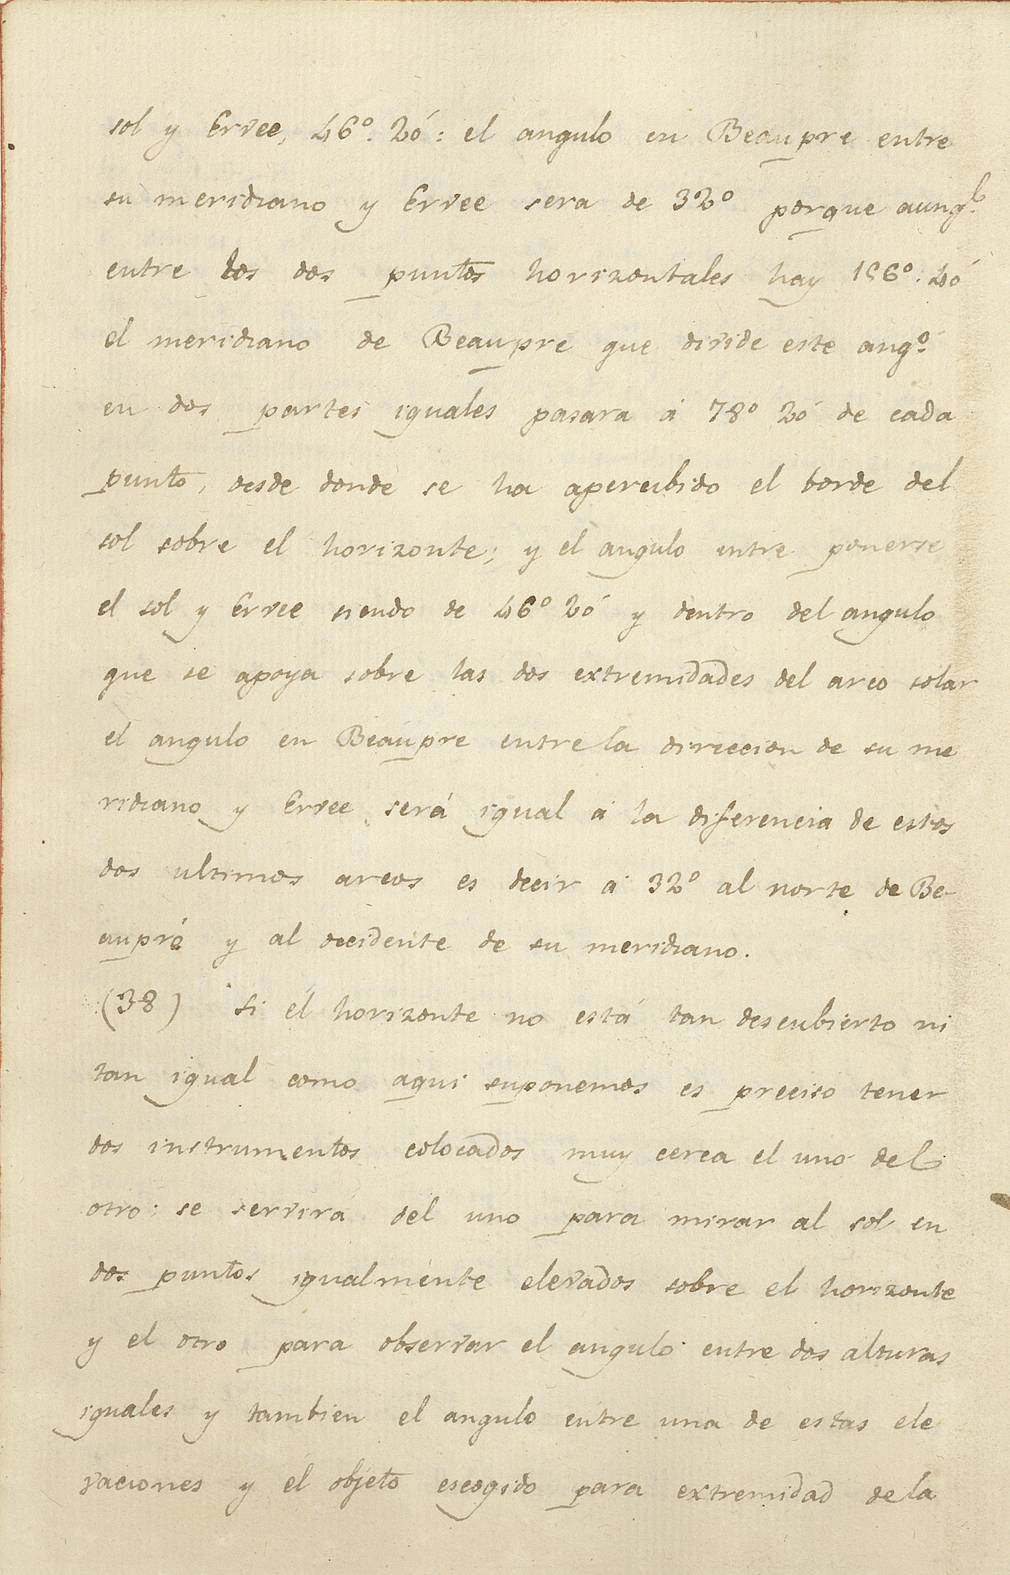 sol y Ervee, 46º. 20': el angulo en Beaupre entre
su meridiano y Ervee sera de 32º porque aunq.e
entre los dos puntos horizontales hay 156º. 40'
el meridiano de Beaupre que divide este ang.º
en dos partes iguales pasara á 78º 20' de cada
punto, desde donde se ha apercibido el borde del
sol sobre el horizonte; y el angulo entre ponerse
el sol y Ervee siendo de 46º 20' y dentro del angulo
que se apoya sobre las dos extremidades del arco solar
el angulo en Beaupre entre la direccion de su me
ridiano y Ervee será igual á la diferencia de estos
dos ultimos arcos es decir á 32º al norte de Be-
aupré y al occidente de su meridiano.
(38) Si el horizonte no está tan descubierto ni
tan igual como aqui suponemos es preciso tener
dos instrumentos colocados muy cerca el uno del
otro: se servirá del uno para mirar al sol en
dos puntos igualmente elevados sobre el horizonte
y el otro para observar el angulo entre dos alturas
iguales y tambien el angulo entre una de estas ele
vaciones y el objeto escogido para extremidad de la